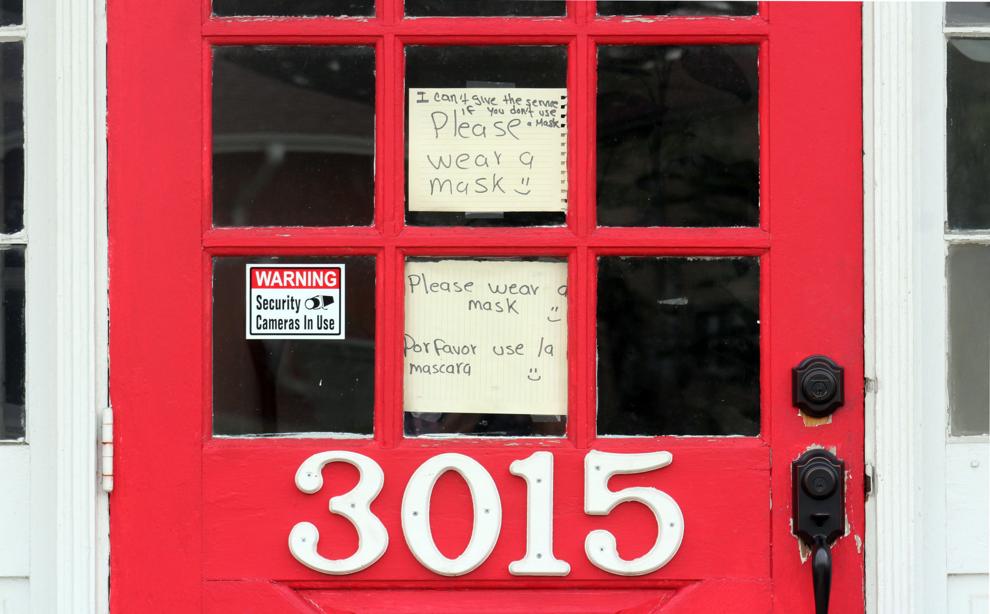 I can't give the service
if you don't use
a Mask
Please
wear a
mask :)
WARNING
Security
Cameras In Use
Please wear a
mask :)
Porfavor use la
mascara :)
3015